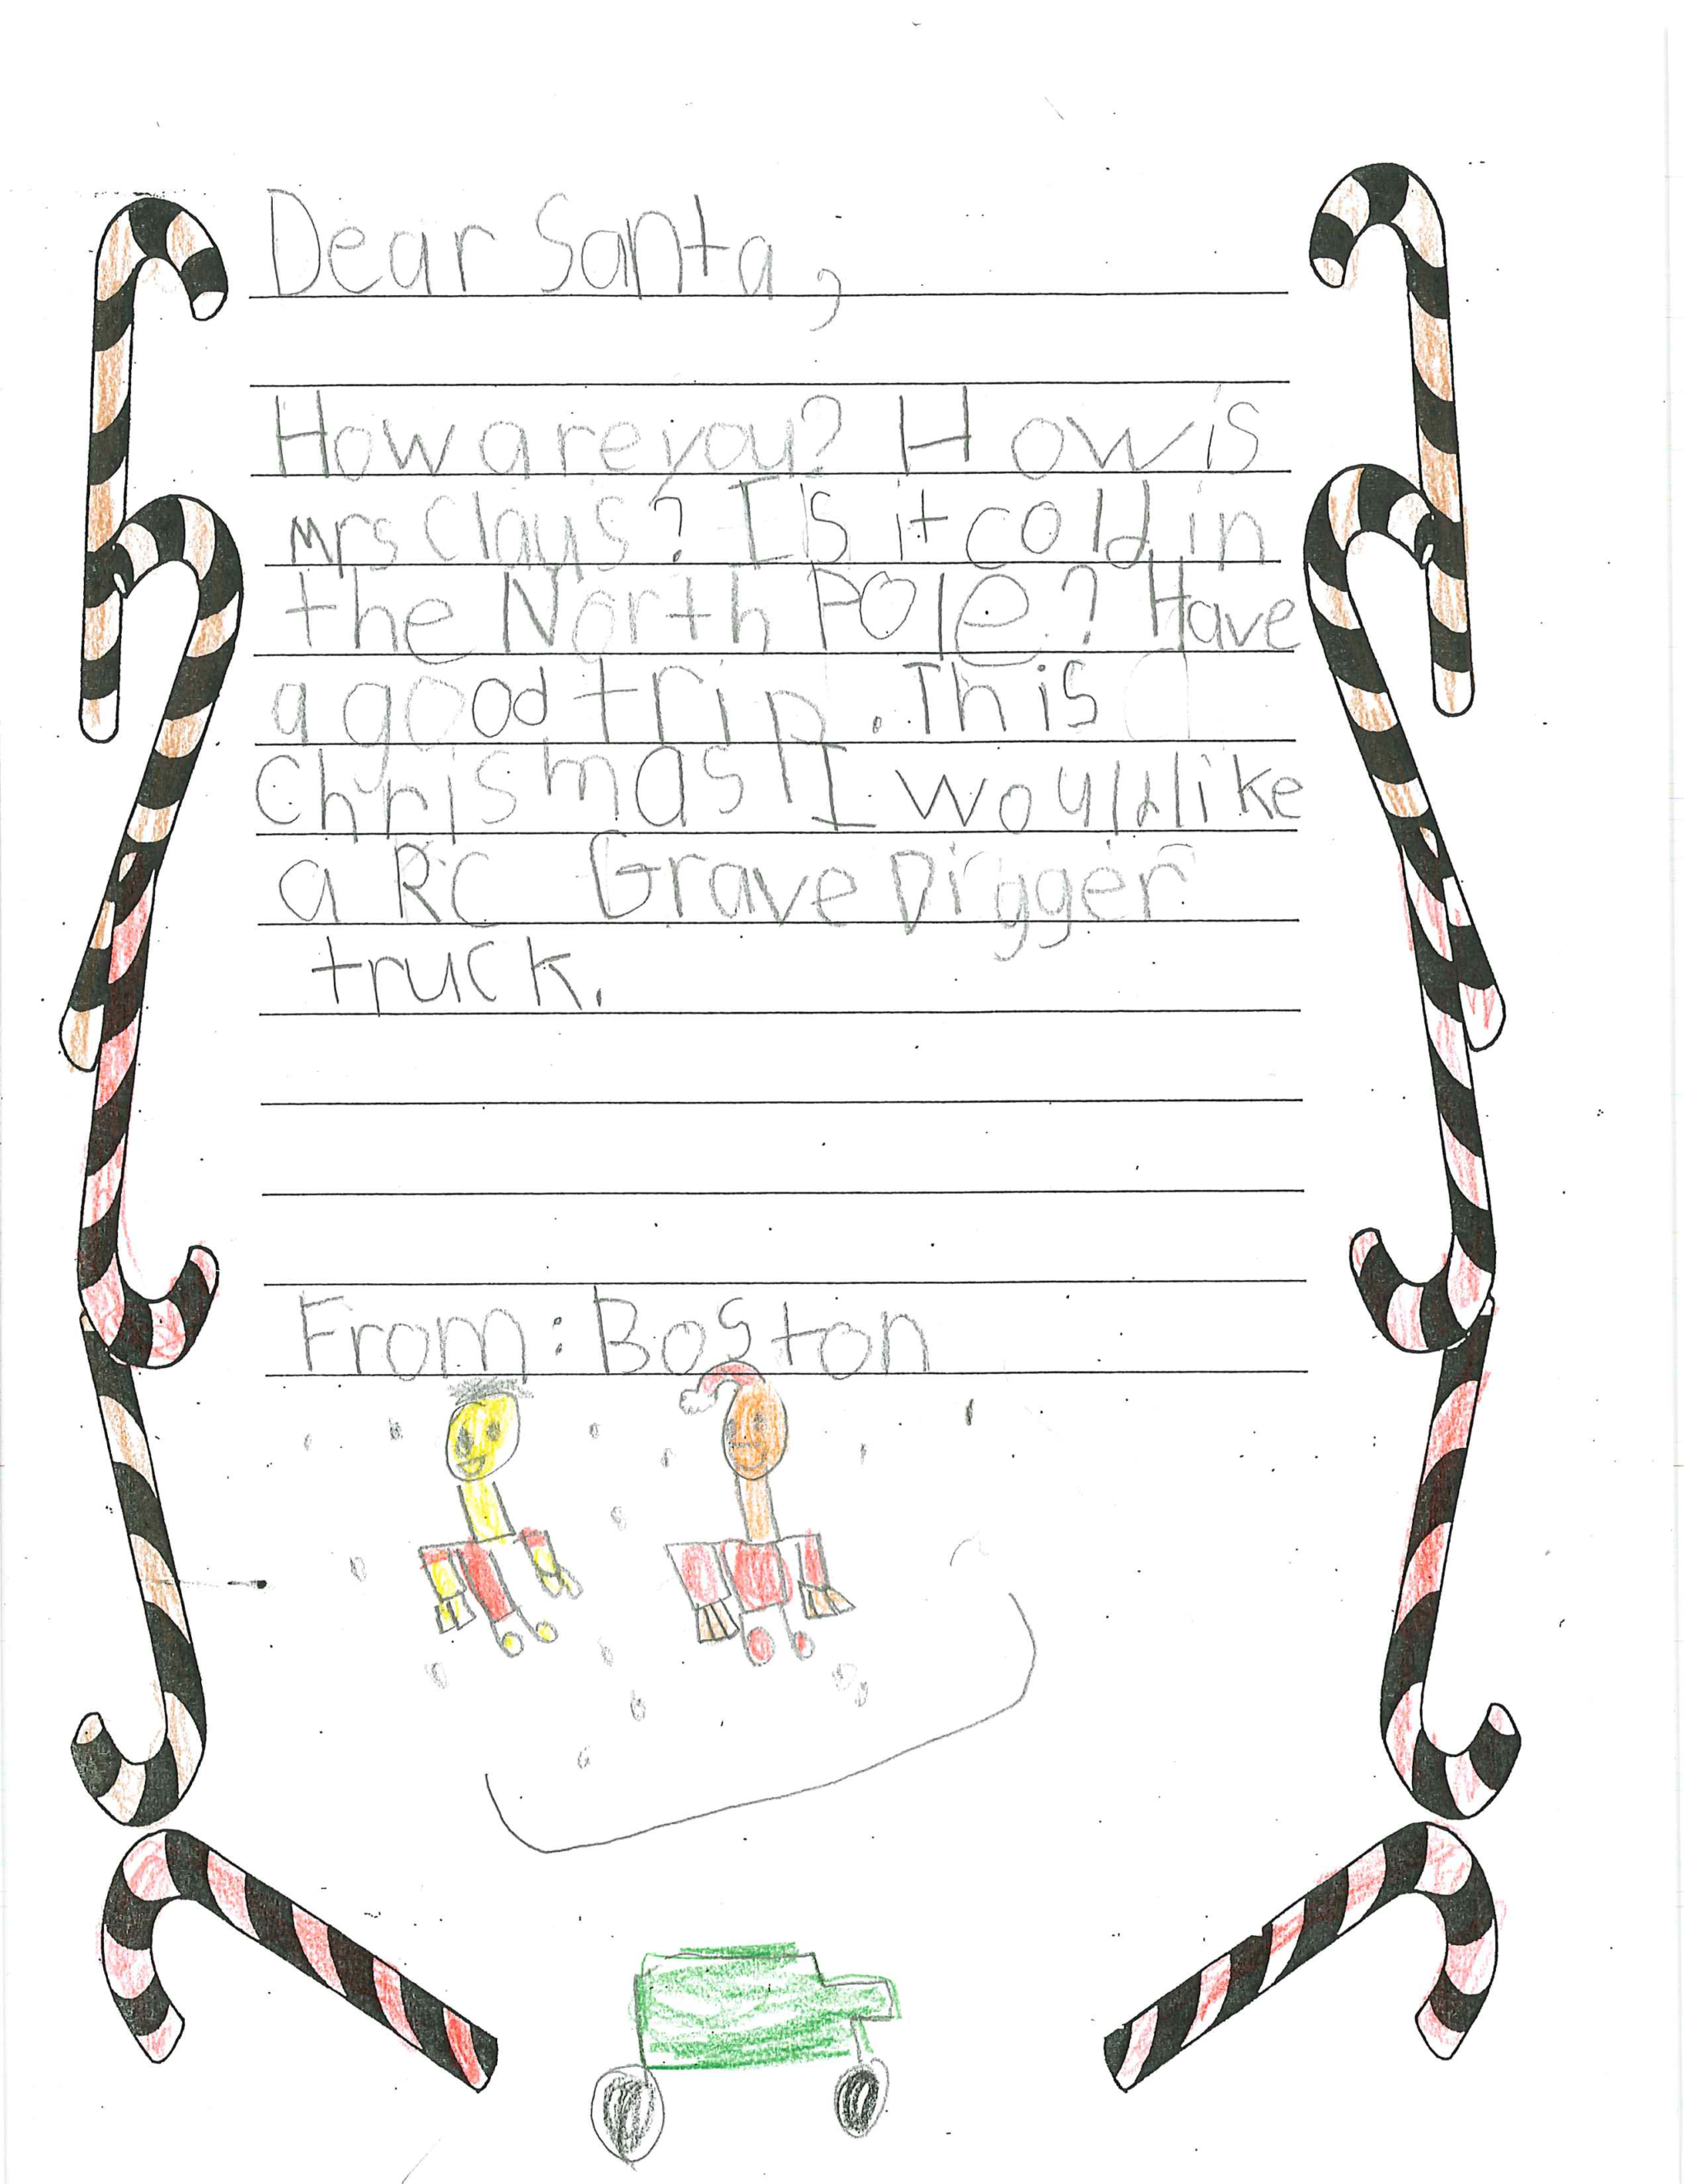 Dear Santa,
How are you? How is
mrs Claus? Is it cold in
the North Pole? Have
a good trip. This
Christmas I would like
a RC Grave Digger
truck.
From: Boston